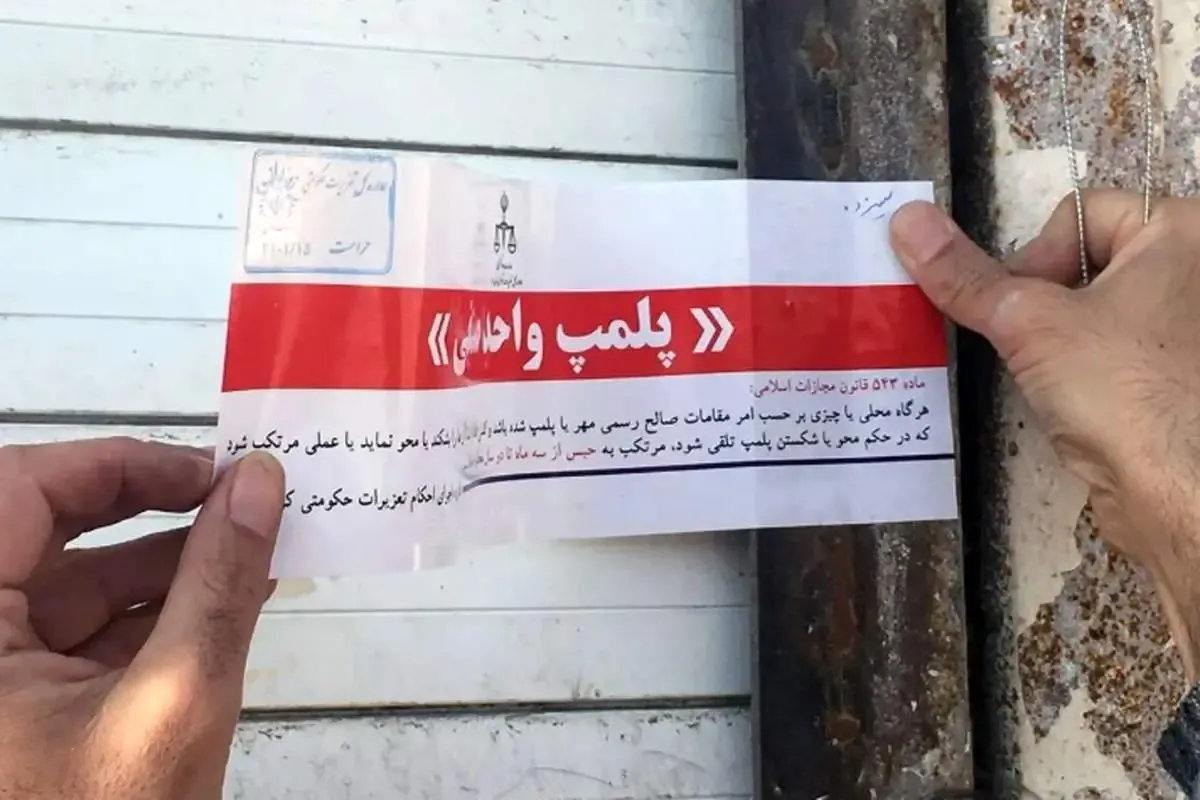 اداره کل تعزیرات حکومتی
حراست
سیزده
« پلمپ واحد صنفی »
ماده ۵۴۳ قانون مجازات اسلامی:
هرگاه محلی یا چیزی بر حسب امر مقامات صالح رسمی مهر یا پلمپ شده باشد و کسی را بشکند یا محو نماید یا عملی مرتکب شود
که در حکم محو یا شکستن پلمپ تلقی شود، مرتکب به حبس از سه ماه تا دو سال
اجرای احکام تعزیرات حکومتی